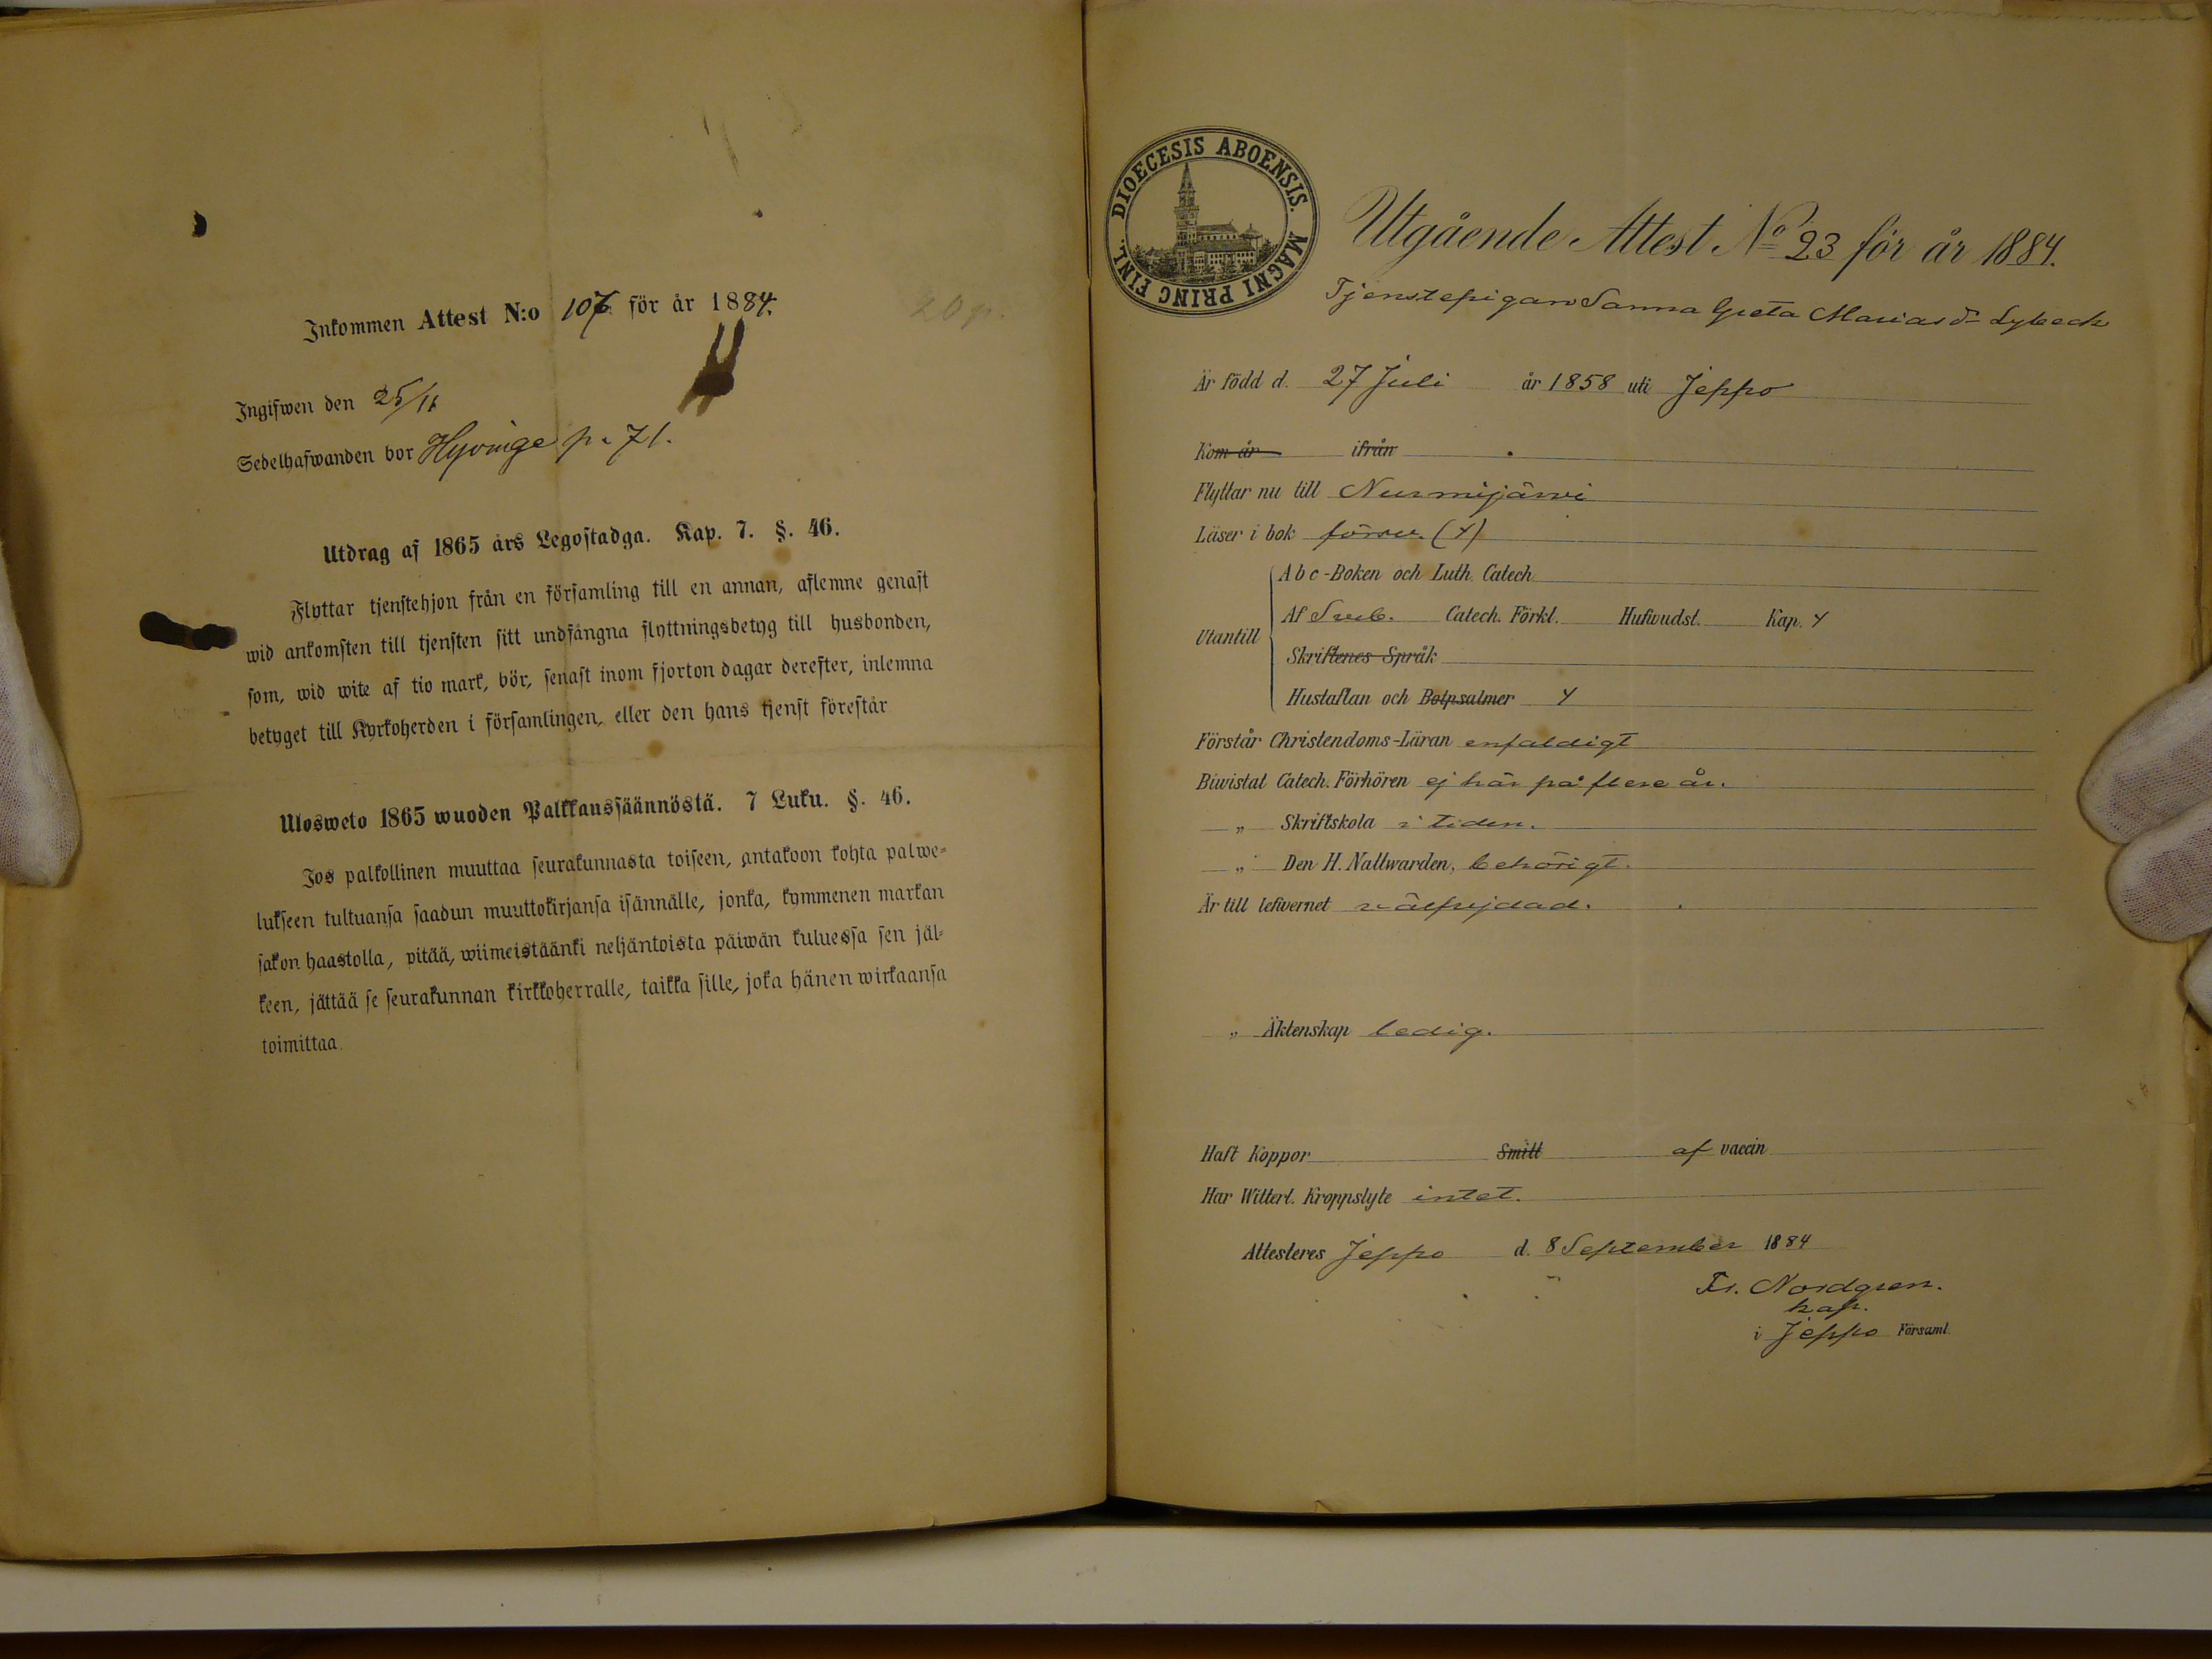 Inkommen Attest N:o 107 för år 1884.
20 p.
Ingifwen den 25/11
Sedelhafwanden bor Hyvinge p. 71.
Utdrag af 1865 års Legostadga. Kap. 7. §. 46.
Flyttar tjenstehjon från en församling till en annan, aflemne genast
wid ankomsten till tjensten sitt undfångna flyttningsbetyg till husbonden,
som, wid wite af tio mark, bör, senast inom fjorton dagar derefter, inlemna
betyget till Kyrkoherden i församlingen, eller den hans tjenst förestår
Ulosweto 1865 wuoden Palkkaussäännöstä. 7 Luku. §. 46.
Jos palkollinen muuttaa seurakunnasta toiseen, antakoon kohta palwe-
lukseen tultuansa saadun muuttokirjansa isännälle, jonka, kymmenen markan
sakon haastolla, pitää, wiimeistäänki neljäntoista päiwän kuluessa sen jäl-
keen, jättää se seurakunnan kirkkoherralle, taikka sille, joka hänen wirkaansa
toimittaa.
DIOECESIS ABOENSIS. MAGNI PRINC FINL.
Utgående Attest No 23 för år 1884.
Tjenstepigan Sanna Greta Mariasdr Lybeck
Är född d. 27 Juli år 1858 uti Jeppo
Kom år ifrån
Flyttar nu till Nurmijärvi
Läser i bokförsv. (4)
Abc-Boken och Luth. Catech.
Utantill
Af Sveb. Catech. Förkl. Hufwudst. Kap. 4
Skriftenes Språk
Hustaflan och Botpsalmer 4
Förstår Christendoms-Läran enfaldigt
Biwistat Catech. Förhören ej här på flere år.
„ Skriftskola i tiden.
„ Den H. Nattwarden, behörigt.
Är till lefwernet välfrejdad.
„ Äktenskap ledig.
Haft Koppor Smitt af vaccin
Har Witterl. Kroppslyte intet.
Attesteres Jeppo d. 8 September 1884
Fr. Nordgren.
kap.
i Jeppo Församl.